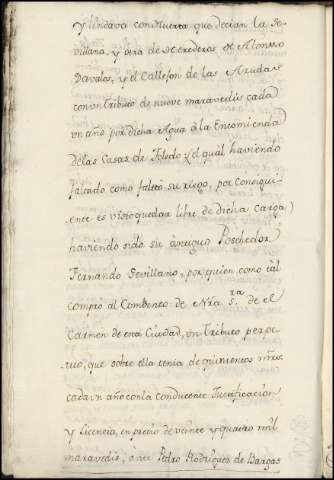 y lindava con Huerta que decian la Se-
villana, y otra de Herederos de Alonsso
Davalos, y el Callejon de las Azudas
con un Tributo de nueve maravedis cada
un año por dicha Agua â la Encomienda
de las Casas de Toledo y el qual haviendo
faltado como faltô su riego, por consigui-
ente es visto quedar libre de dicha carga,
haviendo sido su antiguo Posehedor
Fernando Sevillano, por quien como tal
comprô al Combento de Nra. Sra. de el
Carmen de esta Ciudad, un Tributo perpe-
tuo, que sobre ella tenia de quinientos mrs.
cada un año con la conducente Justificacion
y Licencia, en precio de veinte y quatro mil
maravedis, ante Pedro Rodrigues de Bargas